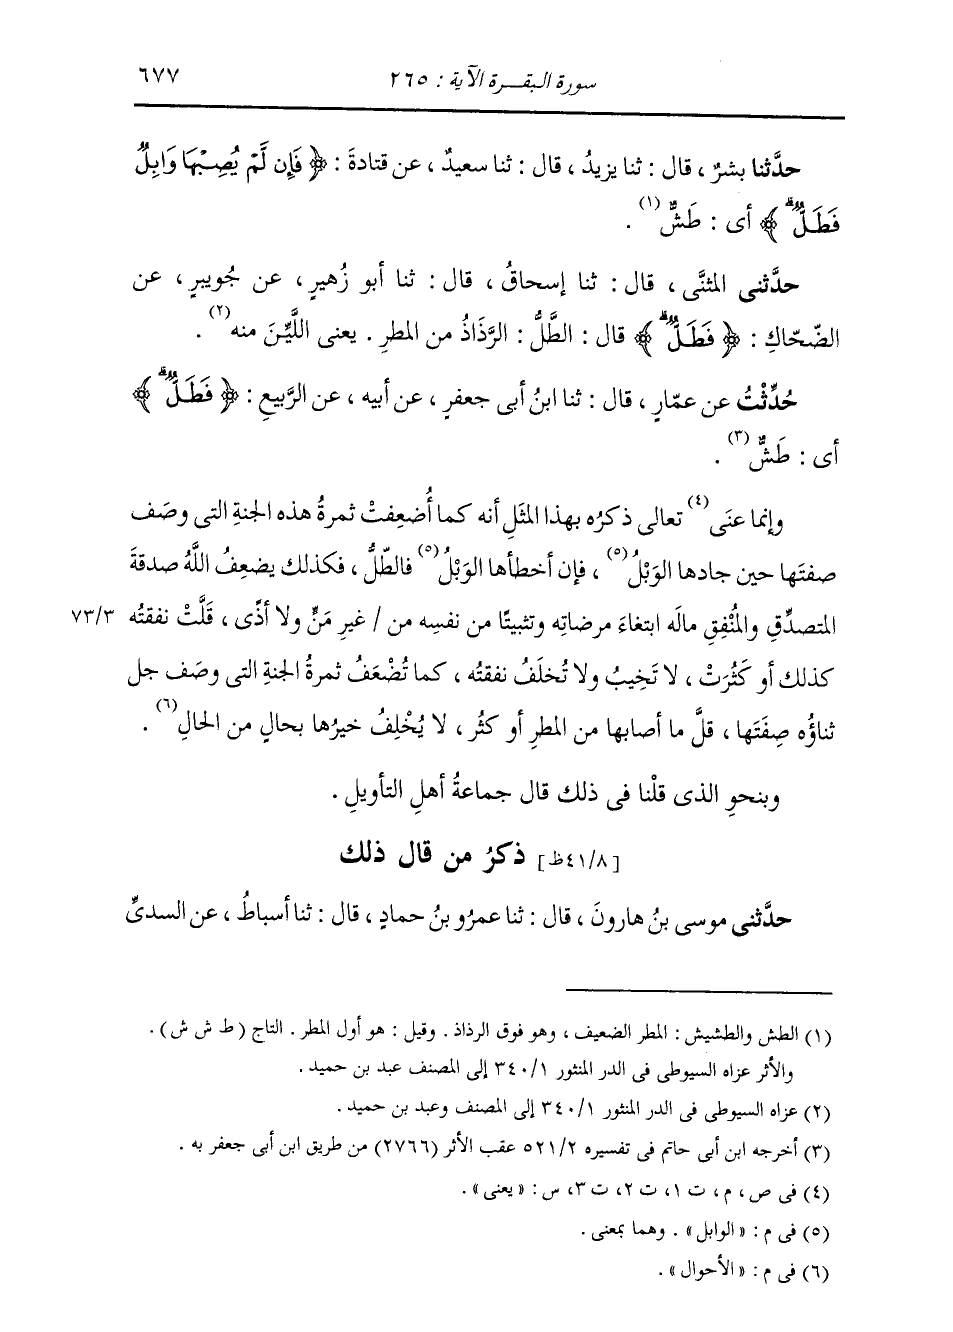 سورة البقرة الآية : ٢٦٥ ٦٧٧
حدَّثنا بشرٌ ، قال : ثنا يزيدُ ، قال : ثنا سعيدٌ ، عن قتادةَ : ﴿ فَإِن لَّمْ يُصِبْهَا وَابِلٌ
فَطَلٌّ ﴾ أى : طَشٌّ(١) .
حدَّثنى المثنَّى ، قال : ثنا إسحاقُ ، قال : ثنا أبو زُهيرٍ ، عن جُويبرٍ ، عن
الضّحّاكِ : ﴿ فَطَلٌّ ﴾ قال : الطَّلُّ : الرَّذَاذُ من المطرِ . يعنى اللَّيِّنَ منه(٢) .
حُدِّثْتُ عن عمّارٍ ، قال : ثنا ابنُ أبى جعفرٍ ، عن أبيه ، عن الرَّبيعِ : ﴿ فَطَلٌّ ﴾
أى : طَشٌّ(٣) .
وإنما عنَى(٤) تعالى ذكرُه بهذا المثَلِ أنه كما أُضعِفتْ ثمرةُ هذه الجنةِ التى وصَف
صفتَها حين جادها الوَبْلُ(٥) ، فإن أخطأها الوَبْلُ(٥) فالطّلُّ ، فكذلك يضعِفُ اللَّهُ صدقةَ
المتصدِّقِ والمُنْفِقِ مالَه ابتغاءَ مرضاتِه وتثبيتًا من نفسِه من / غيرِ مَنٍّ ولا أذًى ، قَلَّتْ نفقتُه ٧٣/٣
كذلك أو كَثُرَتْ ، لا تَخِيبُ ولا تُخلَفُ نفقتُه ، كما تُضْعَفُ ثمرةُ الجنةِ التى وصَف جل
ثناؤُه صِفَتَها ، قلَّ ما أصابها من المطرِ أو كثُر ، لا يُخْلِفُ خيرُها بحالٍ من الحالِ(٦) .
وبنحوِ الذى قلْنا فى ذلك قال جماعةُ أهلِ التأويلِ .
[٤١/٨ظ] ذكرُ من قال ذلك
حدَّثنى موسى بنُ هارونَ ، قال : ثنا عمرُو بنُ حمادٍ ، قال : ثنا أسباطُ ، عن السدىِّ
(١) الطش والطشيش : المطر الضعيف ، وهو فوق الرذاذ . وقيل : هو أول المطر . التاج ( ط ش ش ) .
والأثر عزاه السيوطى فى الدر المنثور ٣٤٠/١ إلى المصنف عبد بن حميد .
(٢) عزاه السيوطى فى الدر المنثور ٣٤٠/١ إلى المصنف وعبد بن حميد .
(٣) أخرجه ابن أبى حاتم فى تفسيره ٥٢١/٢ عقب الأثر (٢٧٦٦) من طريق ابن أبى جعفر به .
(٤) فى ص ، م ، ت ١، ت ٢، ت ٣، س : « يعنى » .
(٥) فى م : « الوابل » . وهما بمعنى .
(٦) فى م : « الأحوال » .